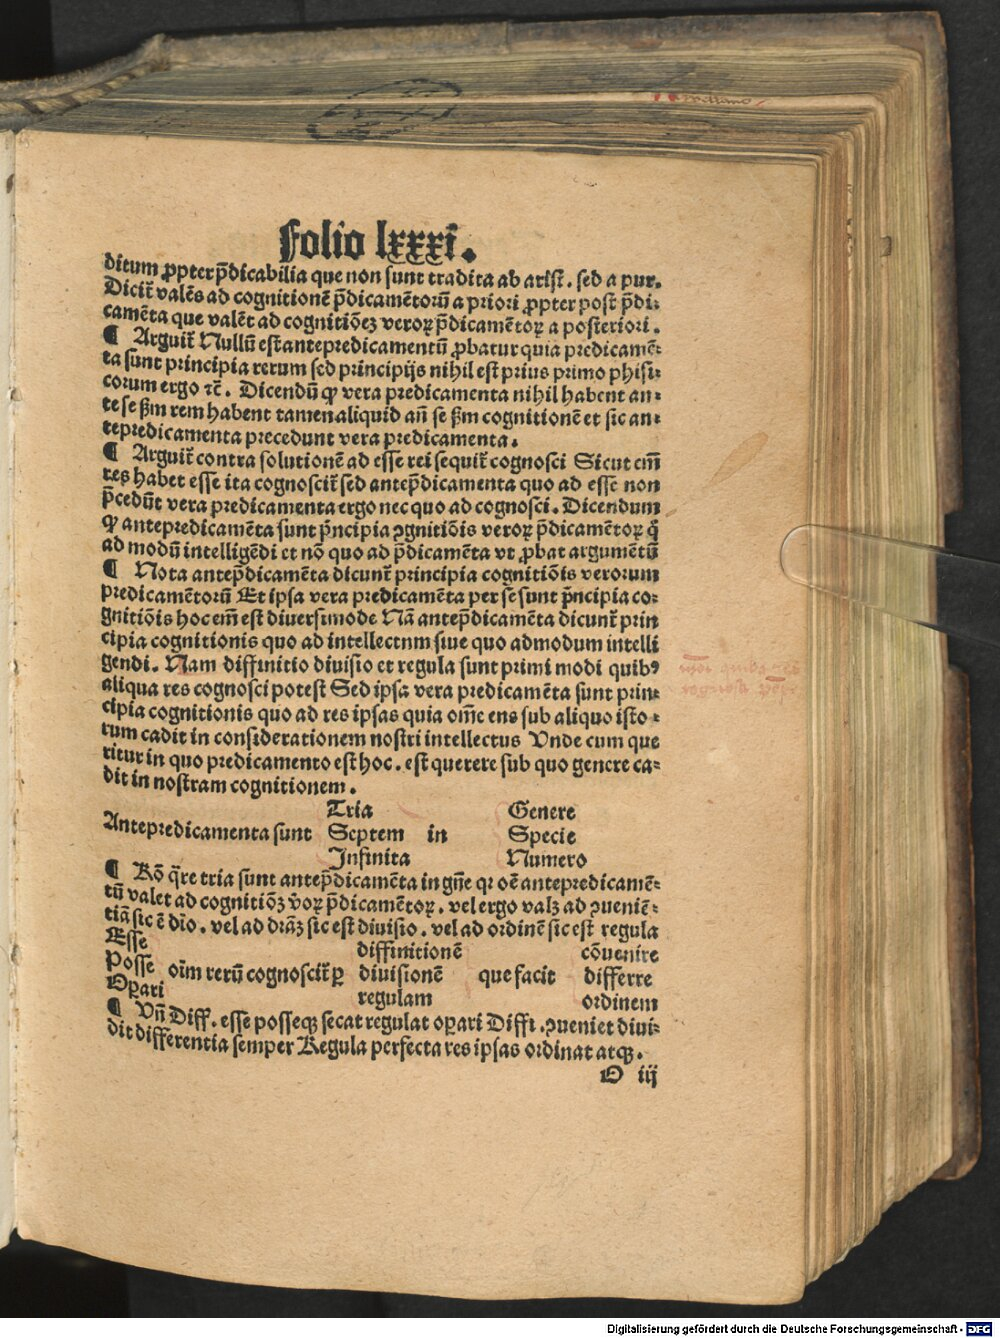 Folio lxxxi.
ditum ꝓpter p̄dicabilia que non sunt tradita ab arist. sed a pur.
Dicit̃ valēs ad cognitionē p̄dicamētorū a priori ꝓpter post p̄di-
camēta que valēt ad cognitiōeꝫ veroꝝ p̄dicamētoꝝ a posteriori.
¶ Arguit̃ Nullū est antepredicamentū ꝓbatur quia predicamē-
ta sunt principia rerum sed principijs nihil est prius primo phisi-
corum ergo ⁊c̄. Dicendū ꝙ vera predicamenta nihil habent an-
te se ẞm rem habent tamen aliquid an̄ se ẞm cognitionē et sic an-
tepredicamenta precedunt vera predicamenta.
¶ Arguit̃ contra solutionē ad esse rei sequit̃ cognosci Sicut em̄
res habet esse ita cognoscit̃ sed antep̄dicamenta quo ad esse non
p̄cedūt vera predicamenta ergo nec quo ad cognosci. Dicendum
ꝙ antepredicamēta sunt p̄ncipia ꝯgnitiōis veroꝝ p̄dicamētoꝝ q̊
ad modū intelligēdi et nō quo ad p̄dicamēta vt ꝓbat argumētū
¶ Nota antep̄dicamēta dicunt̃ principia cognitiōis verorum
predicamētorū Et ipsa vera predicamēta per se sunt p̄ncipia co-
gnitiōis hoc em̄ est diuersimode Nā antep̄dicamēta dicunt̃ prin
cipia cognitionis quo ad intellectnm siue quo admodum intelli
gendi. Nam diffinitio diuisio et regula sunt primi modi quibꝰ
aliqua res cognosci potest Sed ipsa vera predicamēta sunt prin-
cipia cognitionis quo ad res ipsas quia om̄e ens sub aliquo isto-
rum cadit in considerationem nostri intellectus Vnde cum que
ritur in quo predicamento est hoc. est querere sub quo genere ca-
dit in nostram cognitionem.
Antepredicamenta sunt
Tria
Septem
Infinita
in
Genere
Specie
Numero
¶ Rō q̄re tria sunt antep̄dicamēta in gn̄e qꝛ oē antepredicamē-
tū valet ad cognitiōꝫ v̄oꝝ p̄dicamētoꝝ. vel ergo valꝫ ad ꝯueniē-
tiā sic ē dio̅. vel ad dr̄aꝫ sic est diuisio. vel ad ordinē sic est regula
Esse
Posse
Oꝑari
oīm rerū cognoscit̃ ꝑ
diffinitionē
diuisionē
regulam
que facit
cōuenire
differre
ordinem
¶ Vn̄ Diff. esse posseqꝫ secat regulat oꝑari Diffi. ꝯueniet diui-
dit differentia semper Regula perfecta res ipsas ordinat atqꝫ.
O iij
Digitalisierung gefördert durch die Deutsche Forschungsgemeinschaft - DFG